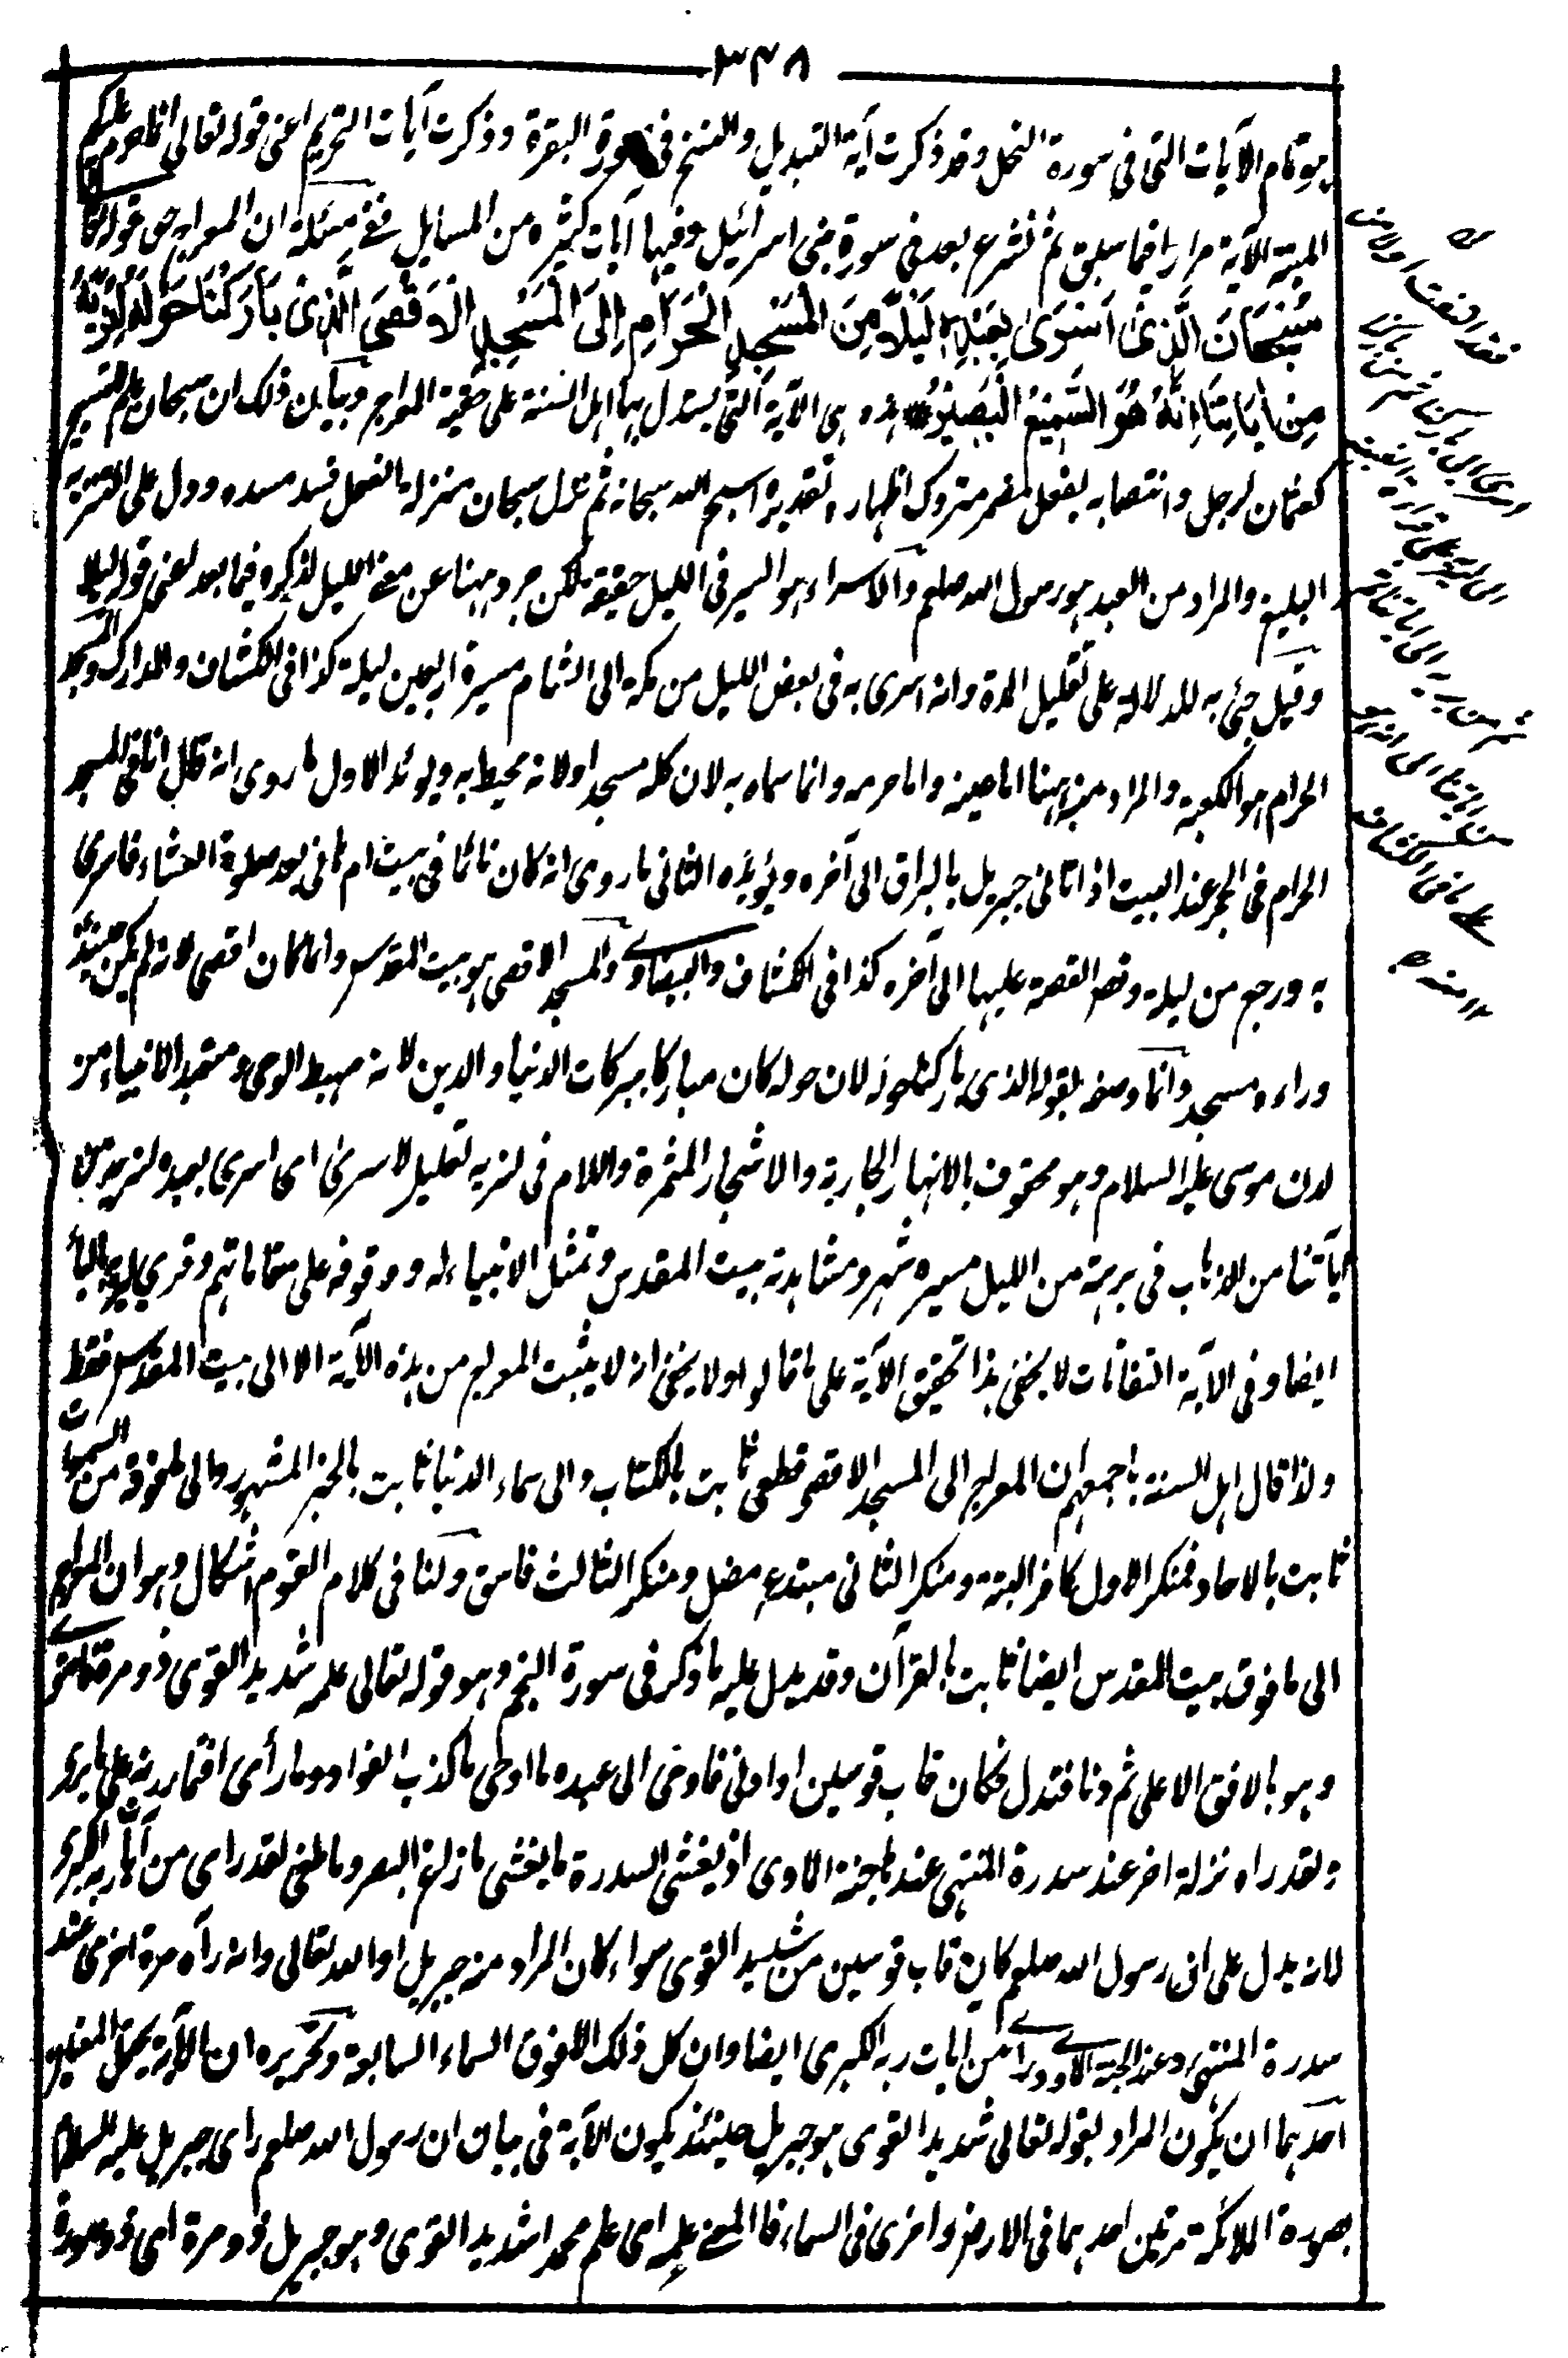 ٣٤٨
هو تمام الآيات التى فى سورة النحل وقد ذكرت آية التبديل والنسخ فى سورة البقرة وذكرت آيات التحريم اعنى قوله تعالى انما حرم عليكم
الميتة الآية مرارا فيما سبق ثم نشرع بعد فى سورة بنى اسرائيل وفيها آيات كثيرة من المسايل ففى مسئلة ان المعراج حق قوله تعالى
سُبْحَانَ الَّذِىْ اَسْرٰى بِعَبْدِهٖ لَيْلًا مِّنَ الْمَسْجِدِ الْحَرَامِ اِلَى الْمَسْجِدِ الْاَقْصَى الَّذِىْ بَارَكْنَا حَوْلَهٗ لِنُرِيَهٗ
مِنْ اٰيَاتِنَا اِنَّهٗ هُوَ السَّمِيْعُ الْبَصِيْرُ هذه هى الآية التى يستدل بها اهل السنة على حقية المعراج وبيان ذلك ان سبحان علم التسبيح
كعثمان لرجل وانتصابه بفعل مضمر متروك اظهاره تقديره اسبح الله سبحانه ثم نزل سبحان منزلة الفعل فسد مسده ودل على التنزيه
البليغ والمراد من العبد هو رسول الله صلعم والاسراء هو السير فى الليل حقيقة لكن جرد ههنا عن معنى الليل لذكره فيما بعد اعنى قوله ليلا
وقيل جئ به للدلالة على تقليل المدة وانه اسرى به فى بعض الليل من مكة الى الشام مسيرة اربعين ليلة كذا فى الكشاف والمدارك والمسجد
الحرام هو الكعبة والمراد منه ههنا اما عينه واما حرمه وانما سماه به لان كله مسجد او لانه محيط به ويؤيد الاول ما روى انه قال انا فى المسجد
الحرام فى الحجر عند البيت اذ اتانى جبريل بالبراق الى آخره ويؤيد الثانى ما روى انه كان نائما فى بيت ام هانى بعد صلوة العشاء فاسرى
به ورجع من ليلة وقص القصة عليها الى آخره كذا فى الكشاف والبيضاوى والمسجد الاقصى هو بيت المقدس وانما كان اقصى لانه لم يكن حينئذ
وراءه مسجد وانما وصفه بقوله الذى باركنا حوله لان حوله كان مباركا ببركات الدنيا والدين لانه مهبط الوحى ومتعبد الانبياء من
لدن موسى عليه السلام وهو محفوف بالانهار الجارية والاشجار المثمرة واللام فى لنريه تعليل لاسرى اى اسرى بعبده لنريه من
آياتنا من الذهاب فى برهة من الليل مسيرة شهر ومشاهدته بيت المقدس وتمثل الانبياء له ووقوفه على مقاماتهم وقرئ ليريه بالياء
ايضا وفى الآية التفاتات لا يخفى هذا تحقيق الآية على ما قالوا ولا يخفى انه لا يثبت المعراج من هذه الآية الا الى بيت المقدس فقط
ولذا قال اهل السنة باجمعهم ان المعراج الى المسجد الاقصى قطعى ثابت بالكتاب والى سماء الدنيا ثابت بالخبر المشهور والى ما فوقه من السموات
ثابت بالاحاد فمنكر الاول كافر البتة ومنكر الثانى مبتدع مضل ومنكر الثالث فاسق ولنا فى كلام القوم اشكال وهو ان المعراج
الى ما فوق بيت المقدس ايضا ثابت بالقرآن وقد يدل عليه ما ذكر فى سورة النجم وهو قوله تعالى علمه شديد القوى ذو مرة فاستوى
وهو بالافق الاعلى ثم دنا فتدلى فكان قاب قوسين او ادنى فاوحى الى عبده ما اوحى ما كذب الفؤاد ما رأى افتمارونه على ما يرى
ولقد راه نزلة اخرى عند سدرة المنتهى عندها جنة الماوى اذ يغشى السدرة ما يغشى ما زاغ البصر وما طغى لقد راى من آيات ربه الكبرى
لانه يدل على ان رسول الله صلعم كان قاب قوسين من شديد القوى سواء كان المراد منه جبريل او الله تعالى وانه رآه مرة اخرى عند
سدرة المنتهى وعند الجنة الماوى ورأى من آيات ربه الكبرى ايضا وان كل ذلك لا فوق السماء السابعة وتحريره ان الآية يحتمل المعنيين
احدهما ان يكون المراد بقوله تعالى شديد القوى هو جبريل حينئذ يكون الآية فى بيان ان رسول الله صلعم راى جبريل عليه السلام
بصورة الملائكة مرتين احدهما فى الارض واخرى فى السماء فالمعنى علمه اى علم محمدا شديد القوى وهو جبريل ذو مرة اى ذو صورة